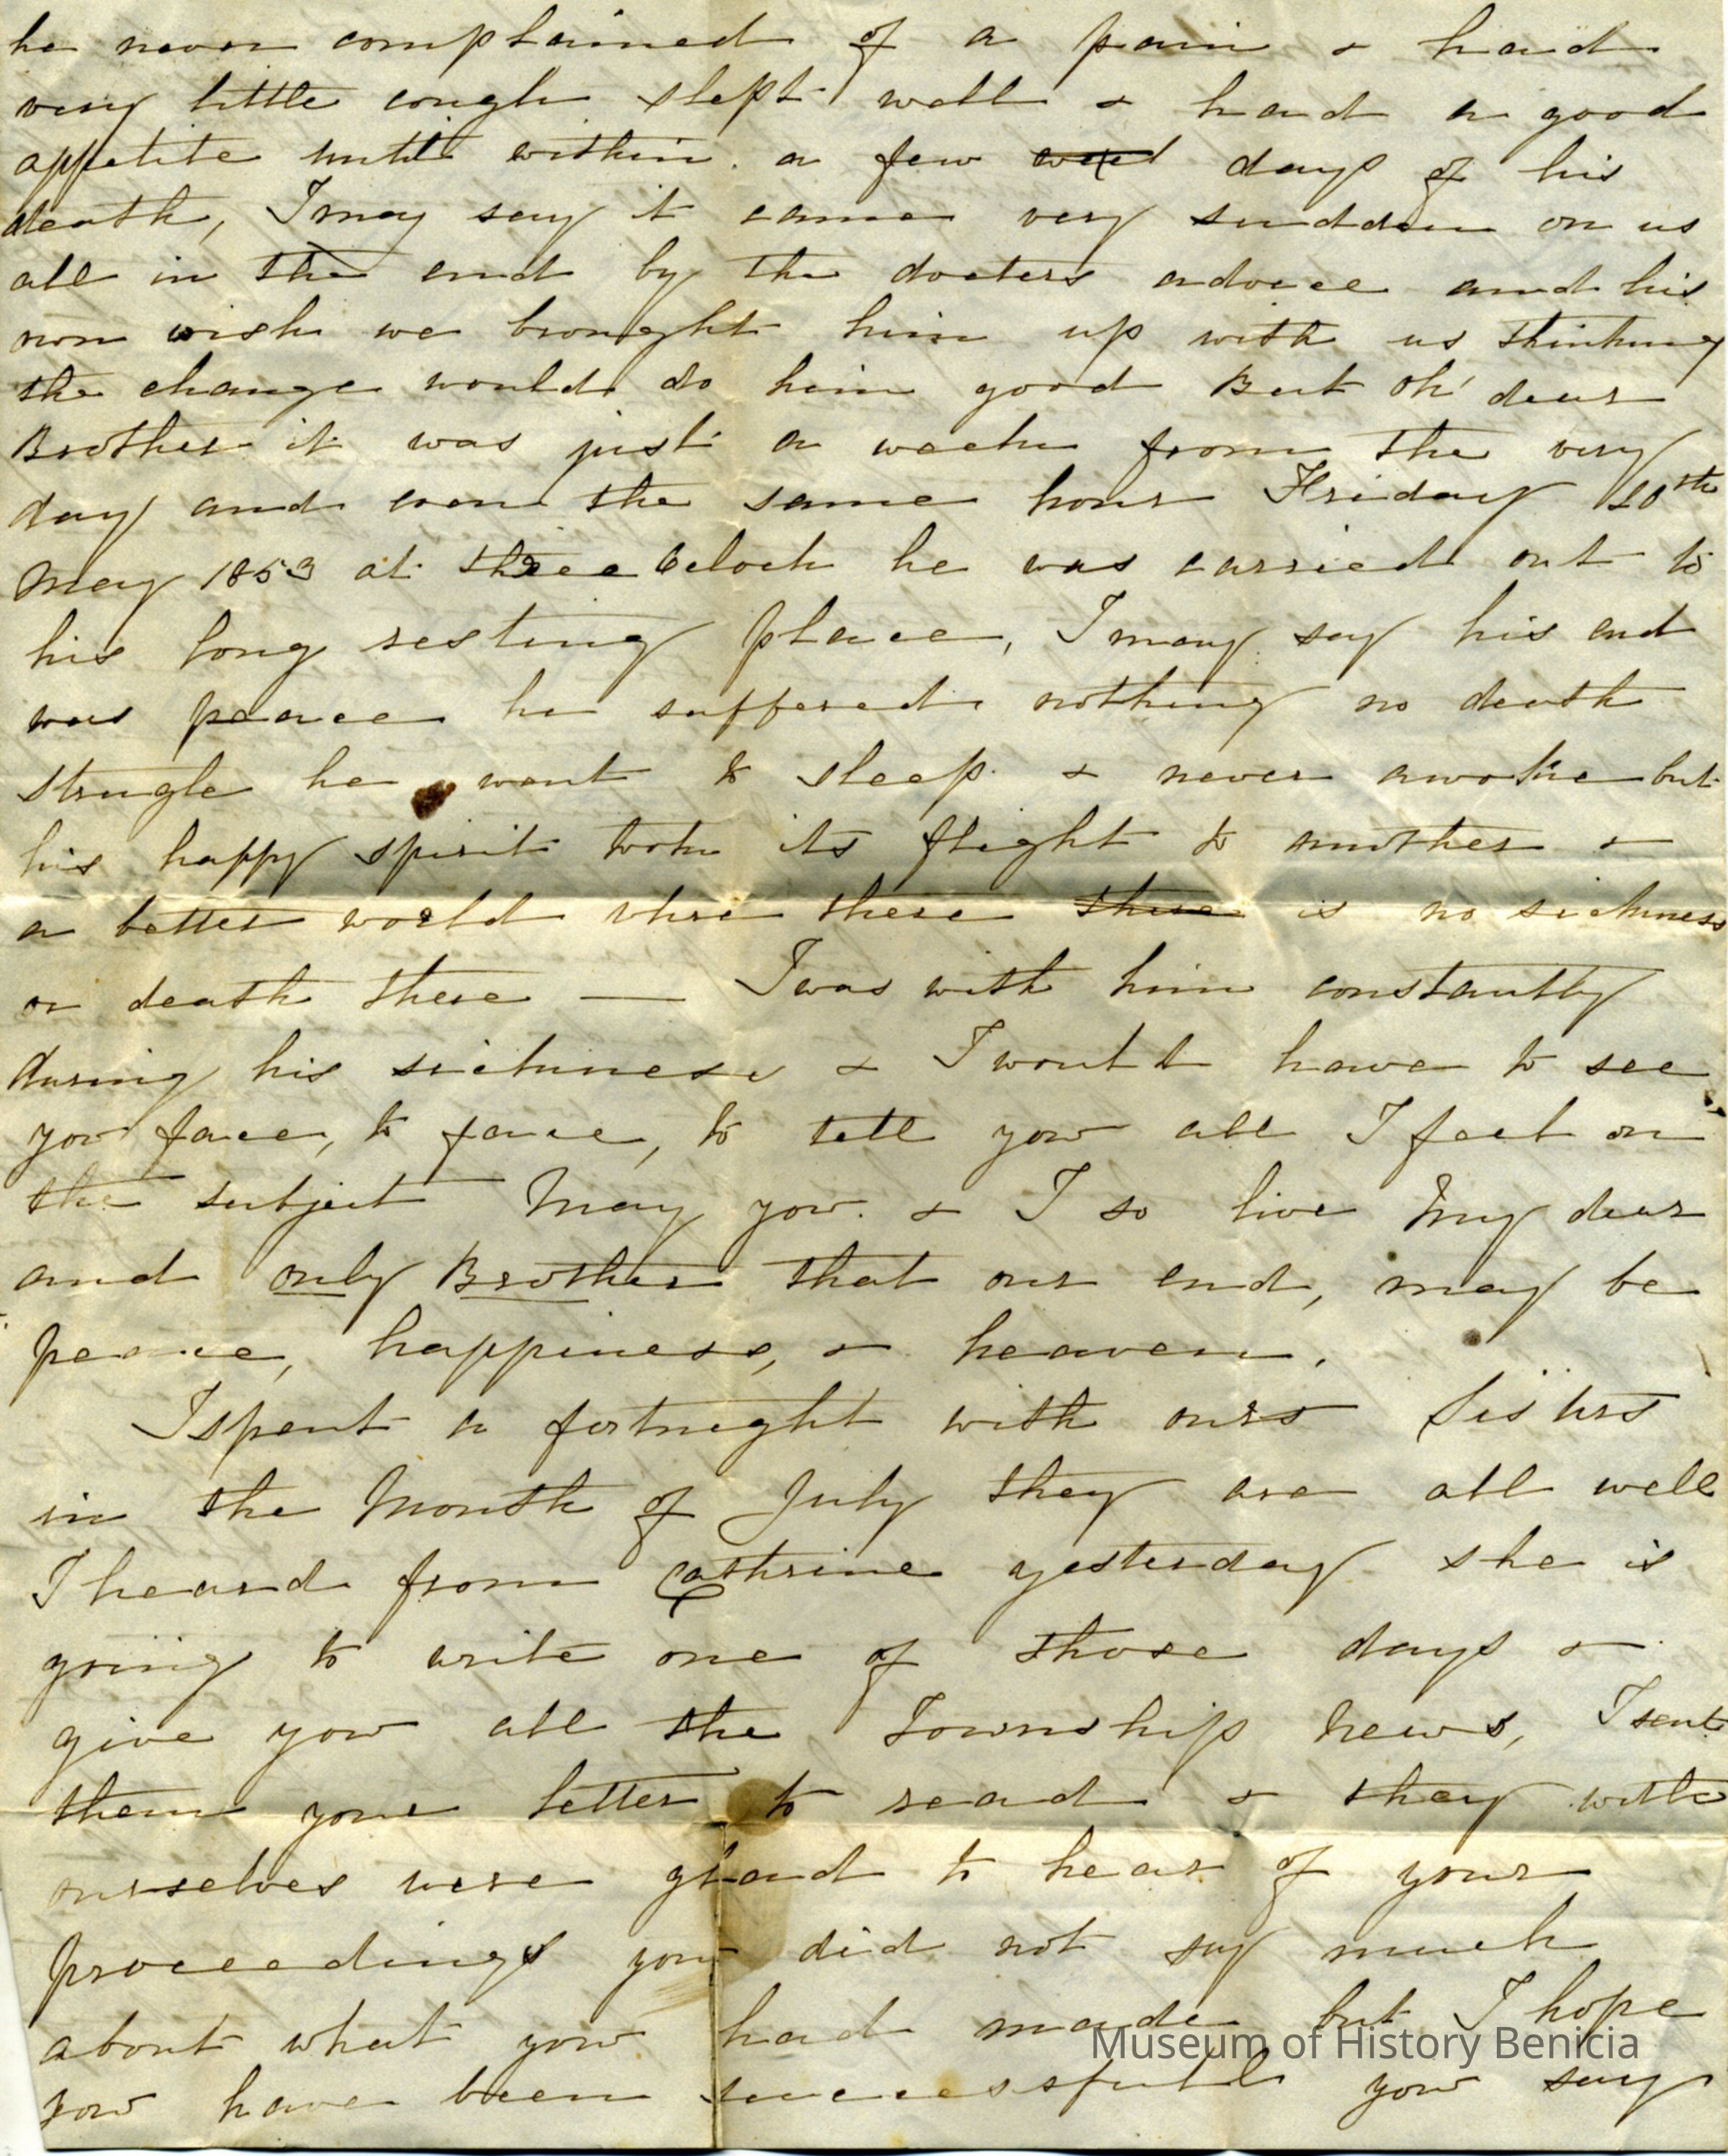 he never complained of a pain & had
very little cough slept well & had a good
appetite until within a few days of his
death, I may say it came very sudden on us
all in the end by the docters advice and his
own wish we brought him up with us thinking
the change would do him good But Oh' dear
Brother it was just a week from the very
day and even the same hour Friday 20th
May 1853 at three Oclock he was carried out to
his long resting place, I may say his end
was peace he suffered nothing no death
strugle he went to sleep & never awoke but
his happy spirit took its flight to another &
a better world where there there is no sickness
or death there — I was with him constantly
during his sickness & I would have to see
you face, to face, to tell you all I feel on
the subject May you & I so live My dear
and only Brother that our end, may be
peace, happiness, & heaven.
I spent a fortnight with ours Sisters
in the Month of July they are all well
I heard from Cathrine yesterday she is
going to write one of those days &
give you all the Township News, I sent
them your letter to read & they with
ourselves were glad to hear of your
proceedings you did not say much
about what you had made but I hope
you have been successfull you say
Museum of History Benicia